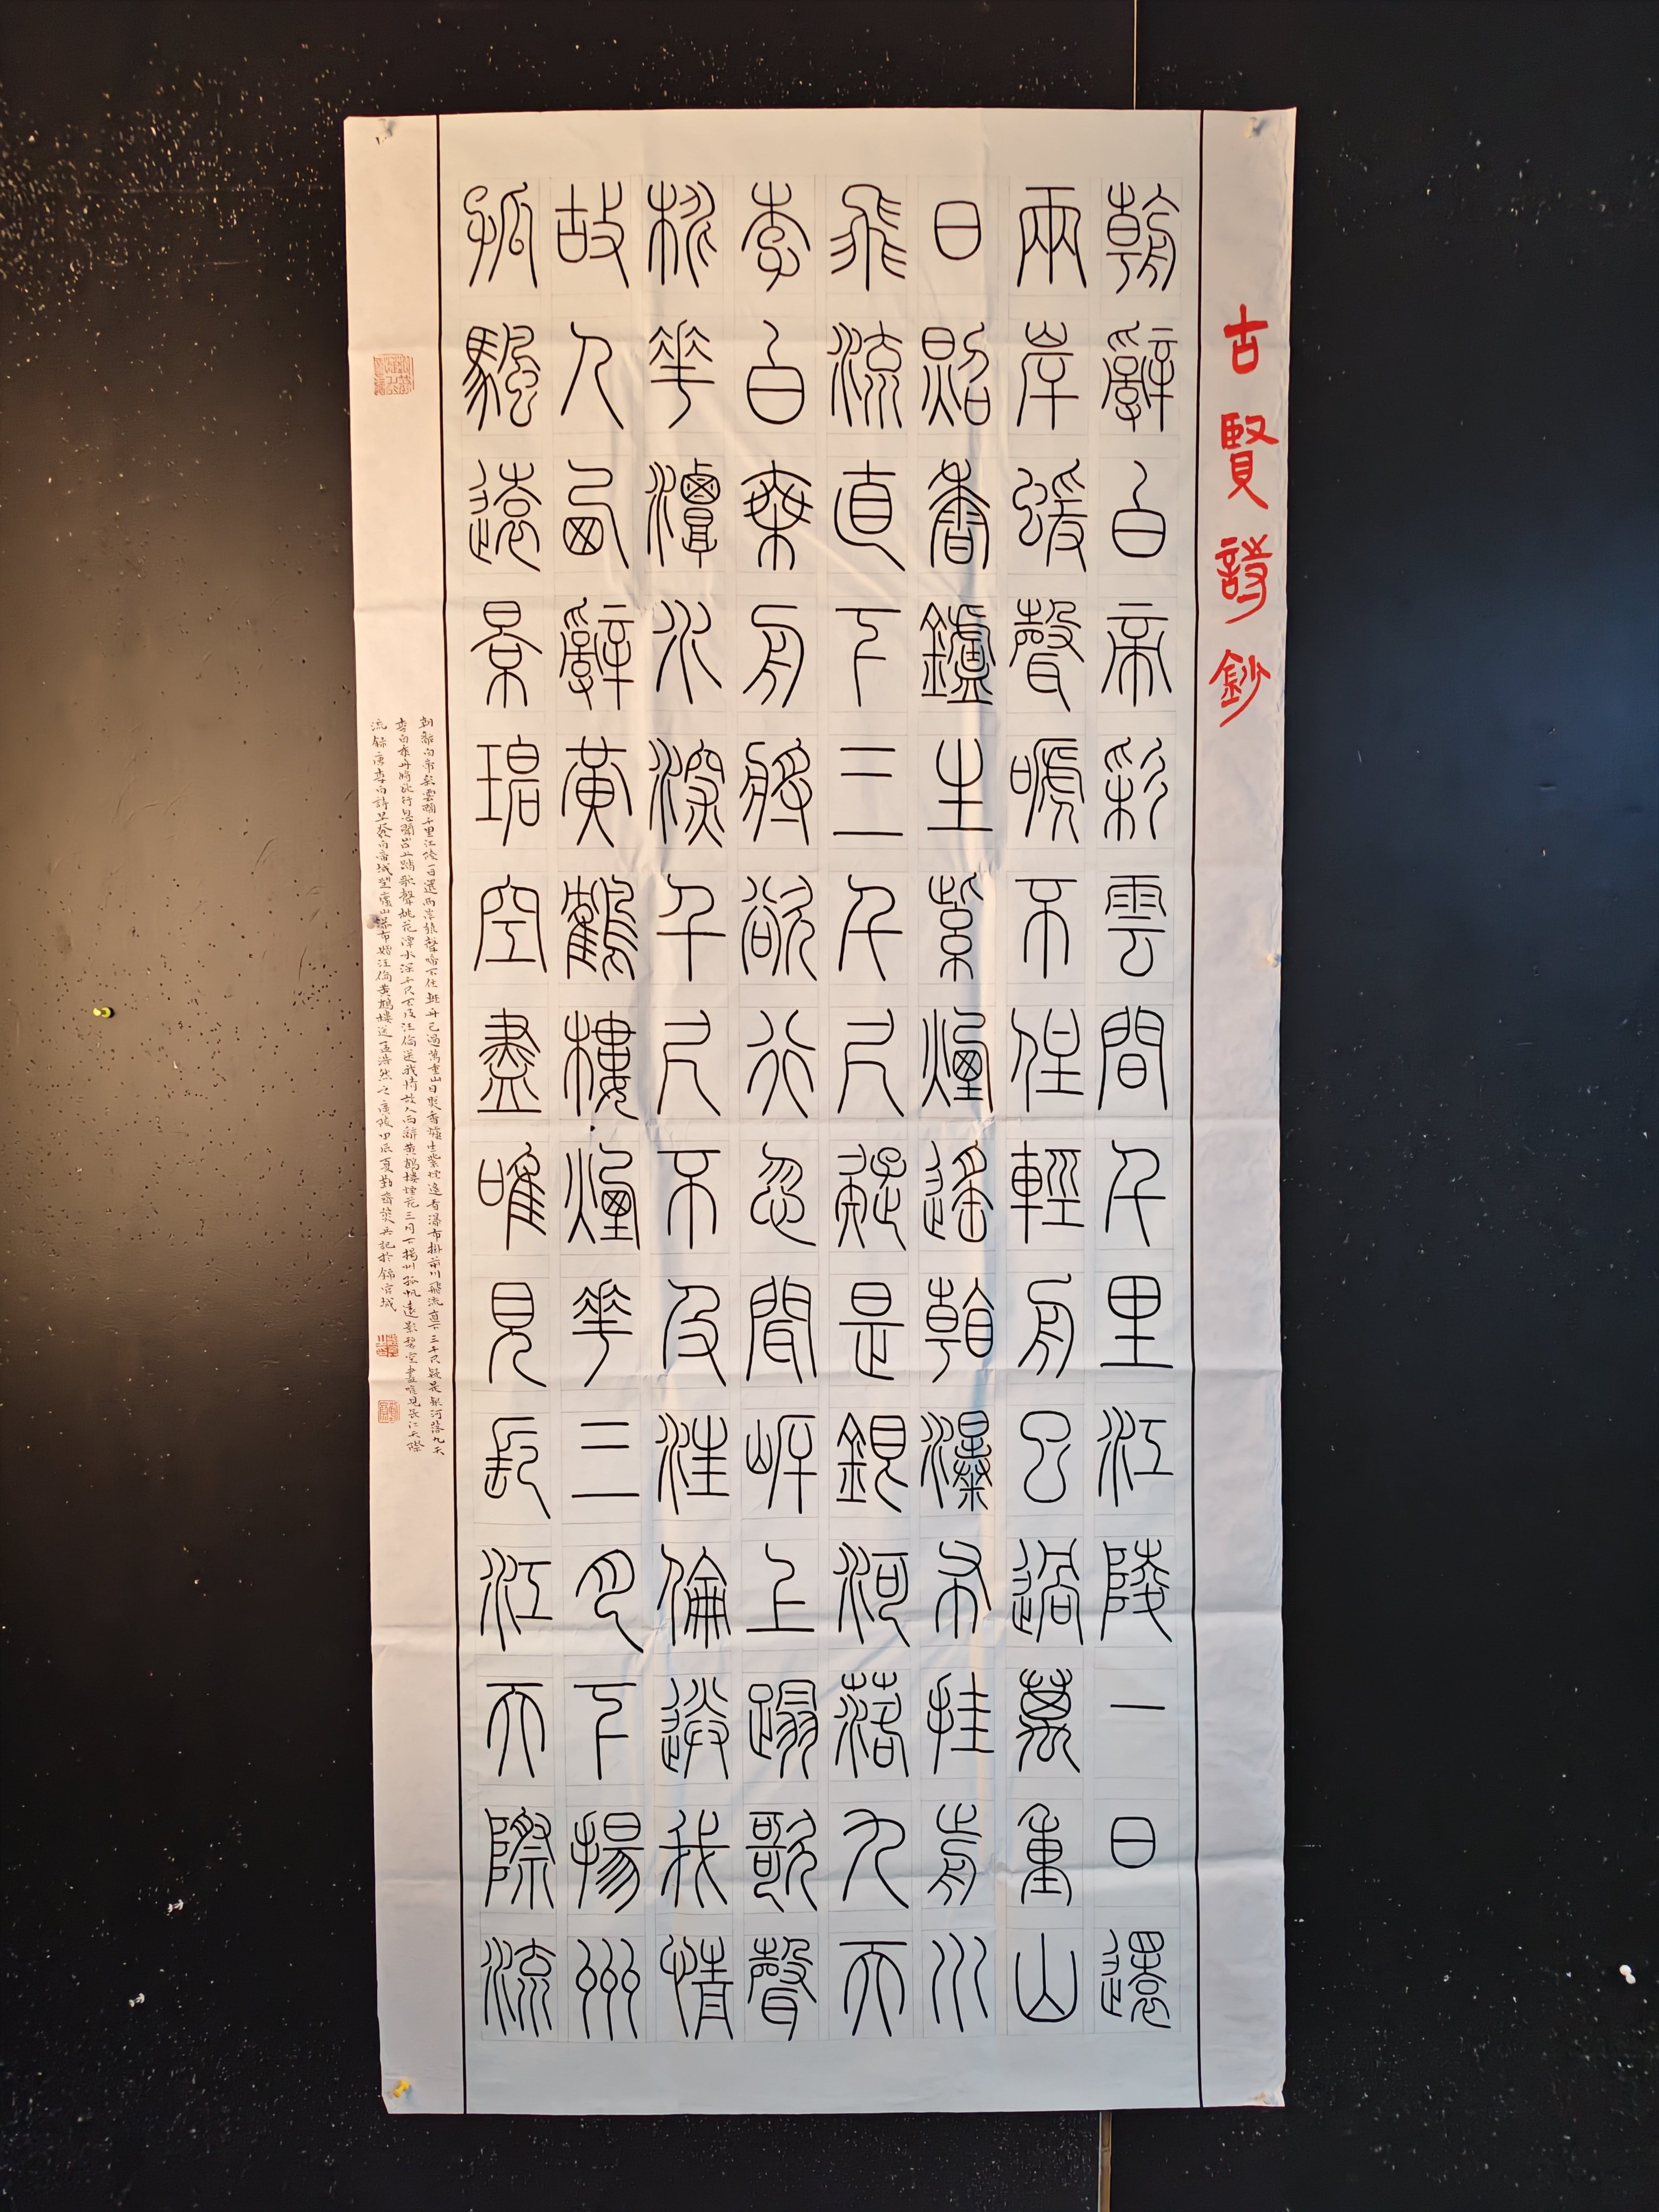 古賢詩鈔
朝辭白帝彩雲間千里江陵一日還
兩岸蝯聲嗁不住輕舟已過萬重山
日照香鑪生紫煙遙看瀑布挂前川
飛流直下三千尺疑是銀河落九天
李白乘舟將欲行忽聞岸上蹋歌聲
桃華潭水深千尺不及汪倫送我情
故人西辭黃鶴樓煙華三月下揚州
孤帆遠景碧空盡唯見長江天際流
朝辭白帝彩雲間千里江陵一日還兩岸猿聲啼不住輕舟已過萬重山日照香爐生紫煙遙看瀑布掛前川飛流直下三千尺疑是銀河落九天
李白乘舟將欲行忽聞岸上踏歌聲桃花潭水深千尺不及汪倫送我情故人西辭黃鶴樓煙花三月下揚州孤帆遠影碧空盡唯見長江天際
流 錄唐李白詩早發白帝城望廬山瀑布贈汪倫黃鶴樓送孟浩然之廣陵甲辰夏勤齋兵記於錦官城